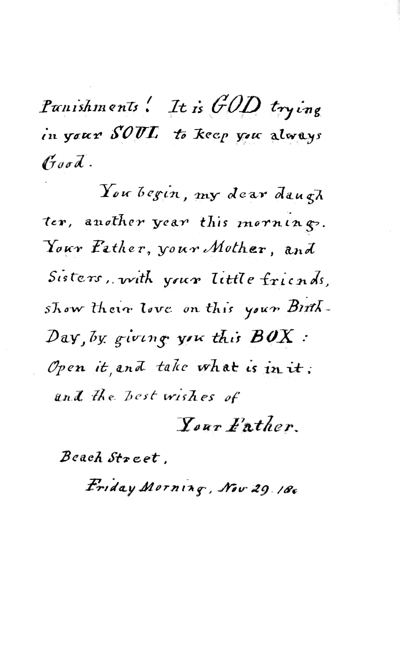 Punishments! It is GOD trying
in your SOUL to keep you always
Good.
You begin, my dear daugh
ter, another year this morning.
Your Father, your Mother, and
Sisters, with your little friends,
show their love on this your Birth-
Day, by giving you this BOX:
Open it, and take what is in it;
and the best wishes of
Your Father.
Beach Street,
Friday Morning, Nov 29.